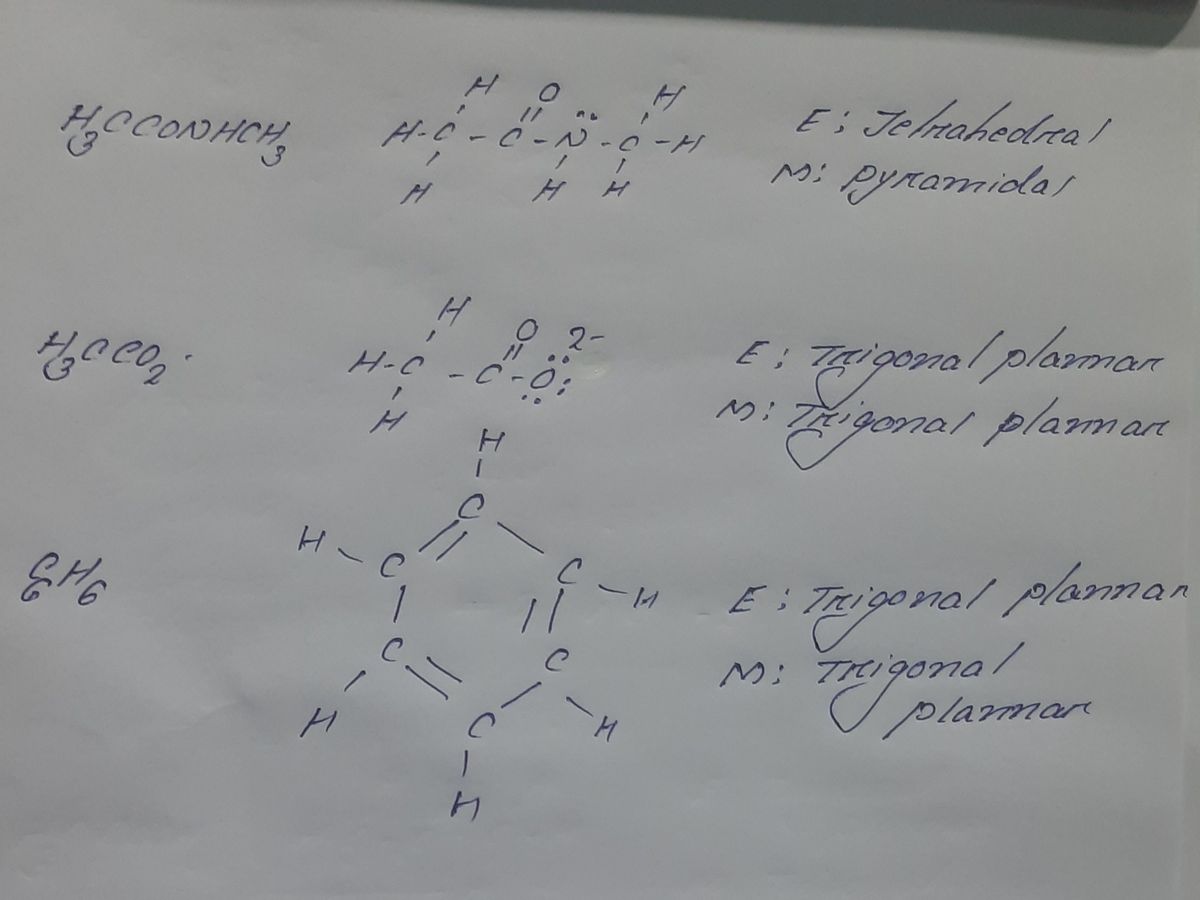 H₃CCONHCH₃
H H
O
H-C-C-N̈-C-H
H H H
E: Tetrahedral
M: pyramidal
H₃CCO₂⁻
H
O 2-
H-C-C-O:
H
E: Trigonal plannar
M: Trigonal plannar
C₆H₆
H
C
H C C H
C C
H C H
H
E: Trigonal plannar
M: Trigonal
plannar